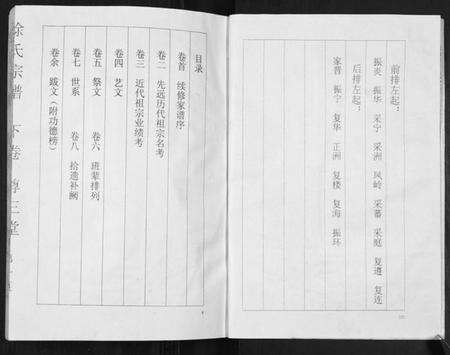 前排左起：
振炎 振华 采宁 采洲 凤岭 采蕃 采庭 复遵 复连
后排左起：
家普 振宁 复华 正洲 复楼 复海 振环
目录
卷首 续修家谱序
卷二 先远历代祖宗名考
卷三 近代祖宗业绩考
卷四 艺文
卷五 祭文 卷六 班辈排列
卷七 世系 卷八 拾遗补阙
卷余 跋文（附功德榜）
徐氏宗谱 下卷 尊三堂